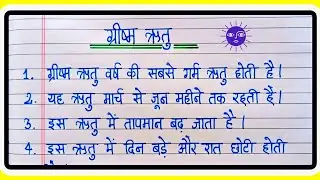 ग्रीष्म ऋतु
1. ग्रीष्म ऋतु वर्ष की सबसे गर्म ऋतु होती है।
2. यह ऋतु मार्च से जून महीने तक रहती हैं।
3. इस ऋतु में तापमान बढ़ जाता है।
4. इस ऋतु में दिन बड़े और रात छोटी होती